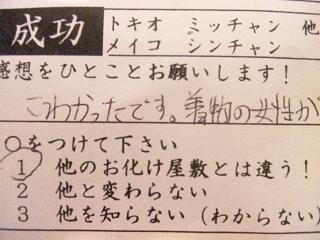 成功 トキオ ミッチャン 他
メイコ シンチャン
感想をひとことお願いします！
こわかったです。着物の女性が
○をつけて下さい
1 他のお化け屋敷とは違う！
2 他と変わらない
3 他を知らない（わからない）